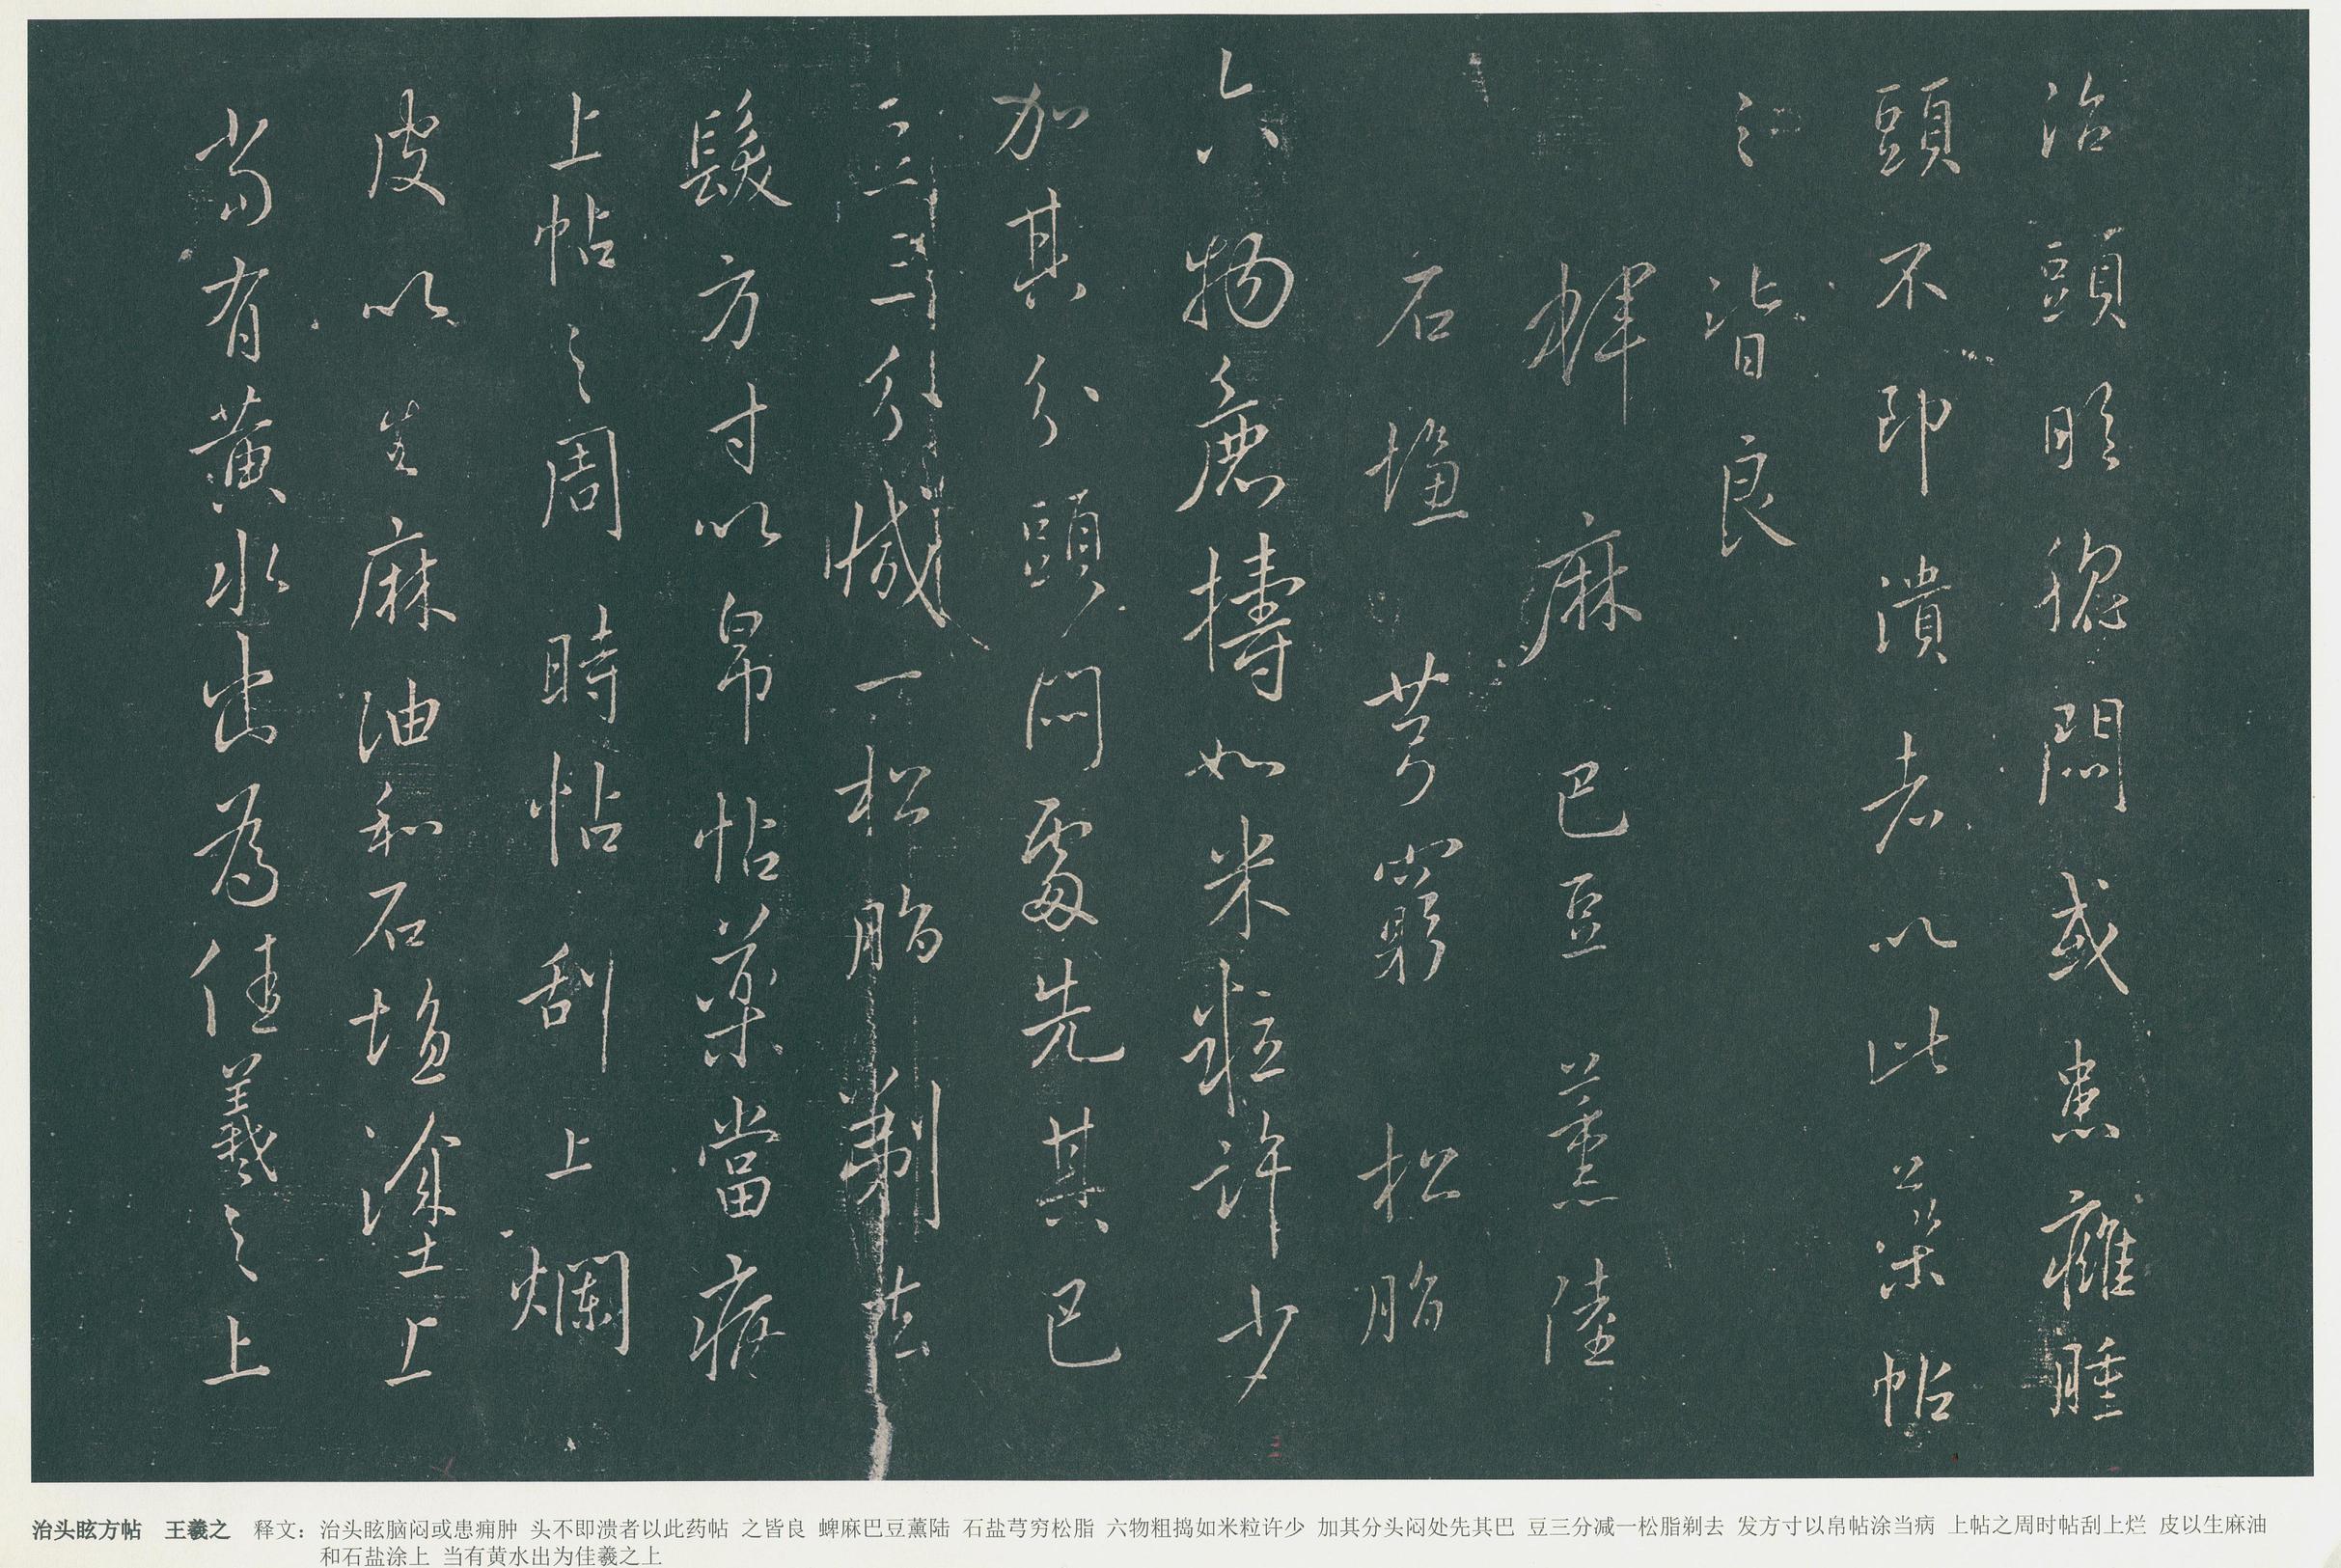 治頭眩腦悶或患癰腫
頭不即潰者以此藥帖
之皆良
蜱麻 巴豆 薰陸
石塩 芎窮 松脂
六物麁擣如米粒許少
加其分頭悶處先其巴
豆三分減一松脂剃去
髮方寸以帛帖藥當病
上帖之周時帖刮上爛
皮以生麻油和石塩塗上
當有黃水出為佳羲之上
治头眩方帖 王羲之 释文：治头眩脑闷或患痈肿 头不即溃者以此药帖 之皆良 蜱麻巴豆薰陆 石盐芎穷松脂 六物粗捣如米粒许少 加其分头闷处先其巴 豆三分减一松脂剃去 发方寸以帛帖涂当病 上帖之周时帖刮上烂 皮以生麻油
和石盐涂上 当有黄水出为佳羲之上